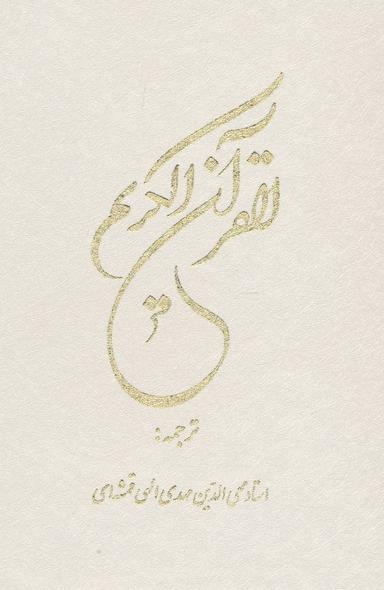 القرآن الكريم
ترجمه:
استاد محی الدین مهدی الهی قمشه‌ای